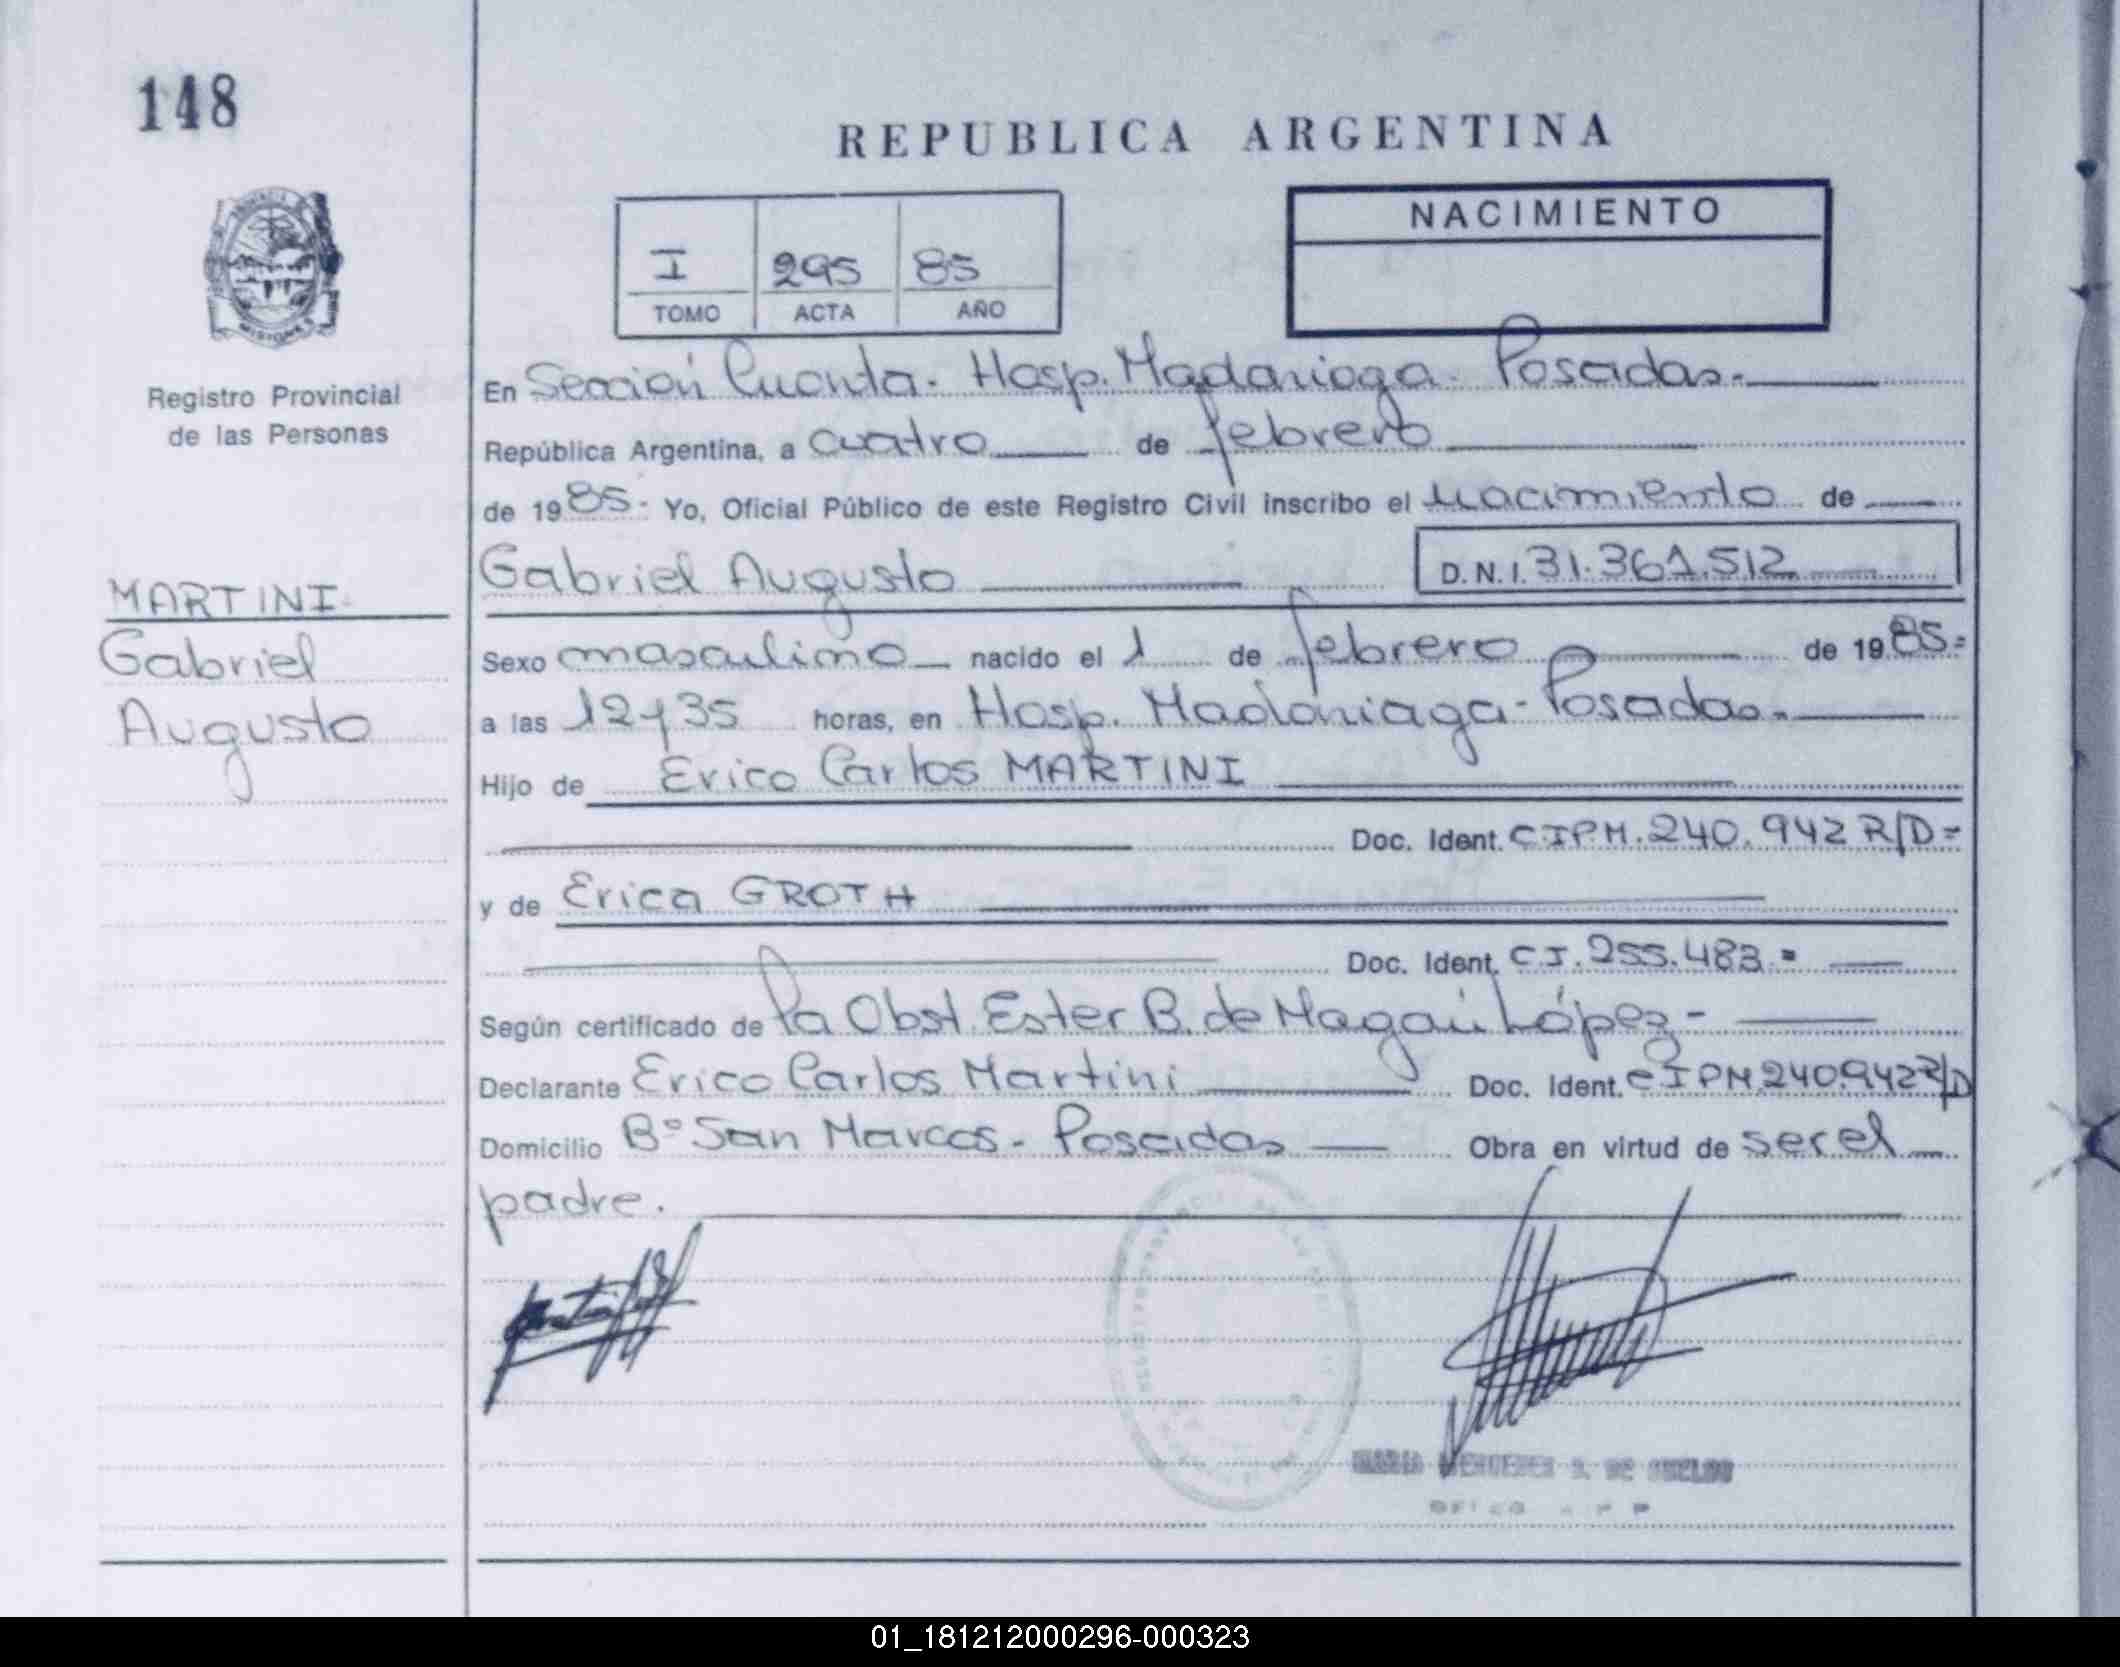 148
REPUBLICA ARGENTINA
NACIMIENTO
I 295 85
TOMO ACTA AÑO
Registro Provincial
de las Personas
MISIONES
En Sección Cuarta. Hosp. Madariaga. Posadas.
República Argentina, a cuatro de febrero
de 1985. Yo, Oficial Público de este Registro Civil inscribo el nacimiento de
Gabriel Augusto D.N.I. 31.361.512
MARTINI
Gabriel
Augusto
Sexo masculino nacido el 1 de febrero de 1985.=
a las 12 y 35 horas, en Hosp. Madariaga - Posadas.
Hijo de Erico Carlos MARTINI
Doc. Ident. C.I.P.M. 240.942 R/D=
y de Erica GROTH
Doc. Ident. C.I. 255.483.=
Según certificado de la Obst. Ester B. de López -
Declarante Erico Carlos Martini Doc. Ident. C.I.P.M. 240.942 R/D
Domicilio Bº San Marcos - Posadas Obra en virtud de ser el
padre.
01_181212000296-000323